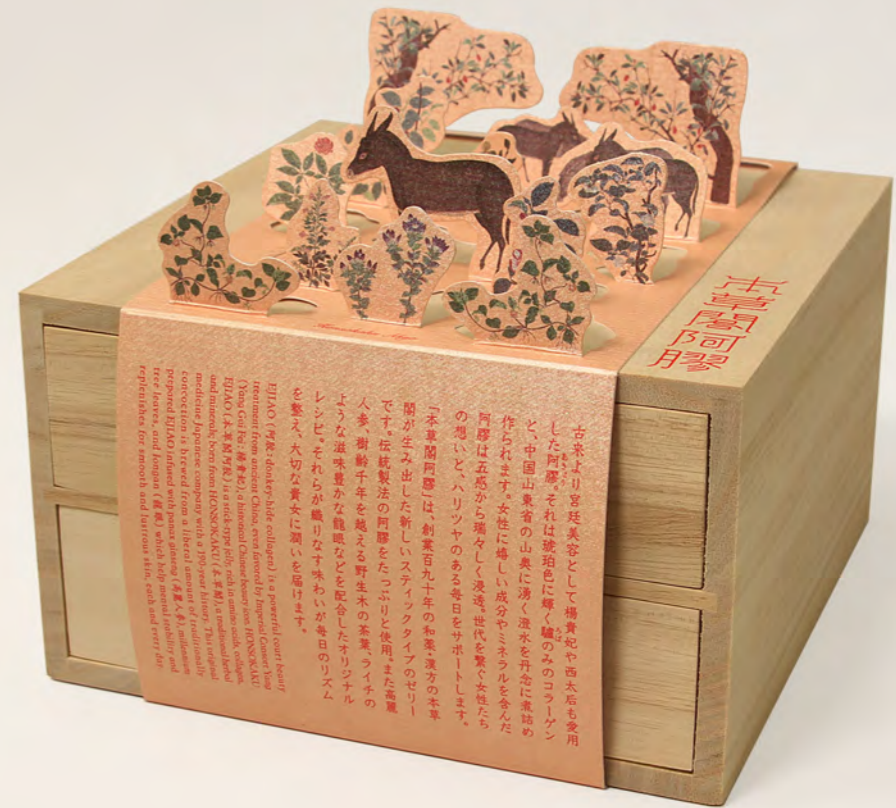 本草閣阿膠
古来より宮廷美容として楊貴妃や西太后も愛用
した阿膠。それは琥珀色に輝く驢のみのコラーゲン
と、中国山東省の山奥に湧く澄水を丹念に煮詰め
作られます。女性に嬉しい成分やミネラルを含んだ
阿膠は五感から瑞々しく浸透。世代を繋ぐ女性たち
の想いと、ハリツヤのある毎日をサポートします。
「本草閣阿膠」は、創業百九十年の和薬・漢方の本草
閣が生み出した新しいスティックタイプのゼリー
です。伝統製法の阿膠をたっぷりと使用。また高麗
人参、樹齢千年を越える野生木の茶葉、ライチの
ような滋味豊かな龍眼などを配合したオリジナル
レシピ。それらが織りなす味わいが毎日のリズム
を整え、大切な貴女に潤いを届けます。
EJIAO (阿膠: donkey-hide collagen) is a powerful court beauty
treatment from ancient China, even favored by Imperial Consort Yang
(Yang Gui Fei: 楊貴妃), a historical Chinese beauty icon. HONSOKAKU
EJIAO (本草閣阿膠) is a stick-type jelly, rich in amino acids, collagen,
and minerals; born from HONSOKAKU (本草閣), a traditional herbal
medicine Japanese company with a 190-year history. This original
concoction is brewed from a liberal amount of traditionally
prepared EJIAO infused with panax ginseng (高麗人参), millennium
tree leaves, and longan (龍眼) which help mental stability and
replenishes for smooth and lustrous skin, each and every day.